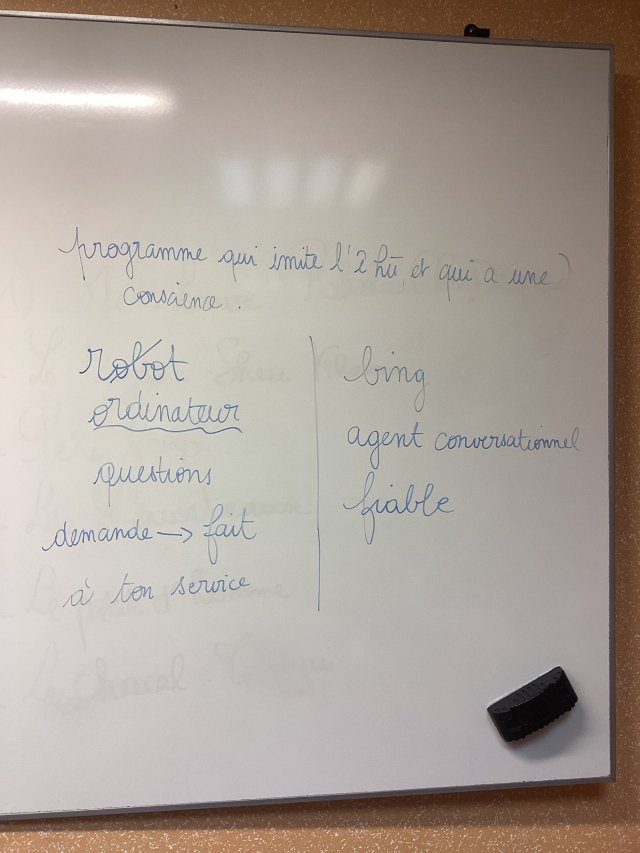 programme qui imite l'I hū, et qui a une
conscience.
robot
ordinateur
questions
demande → fait
à ton service
bing
agent conversationnel
fiable